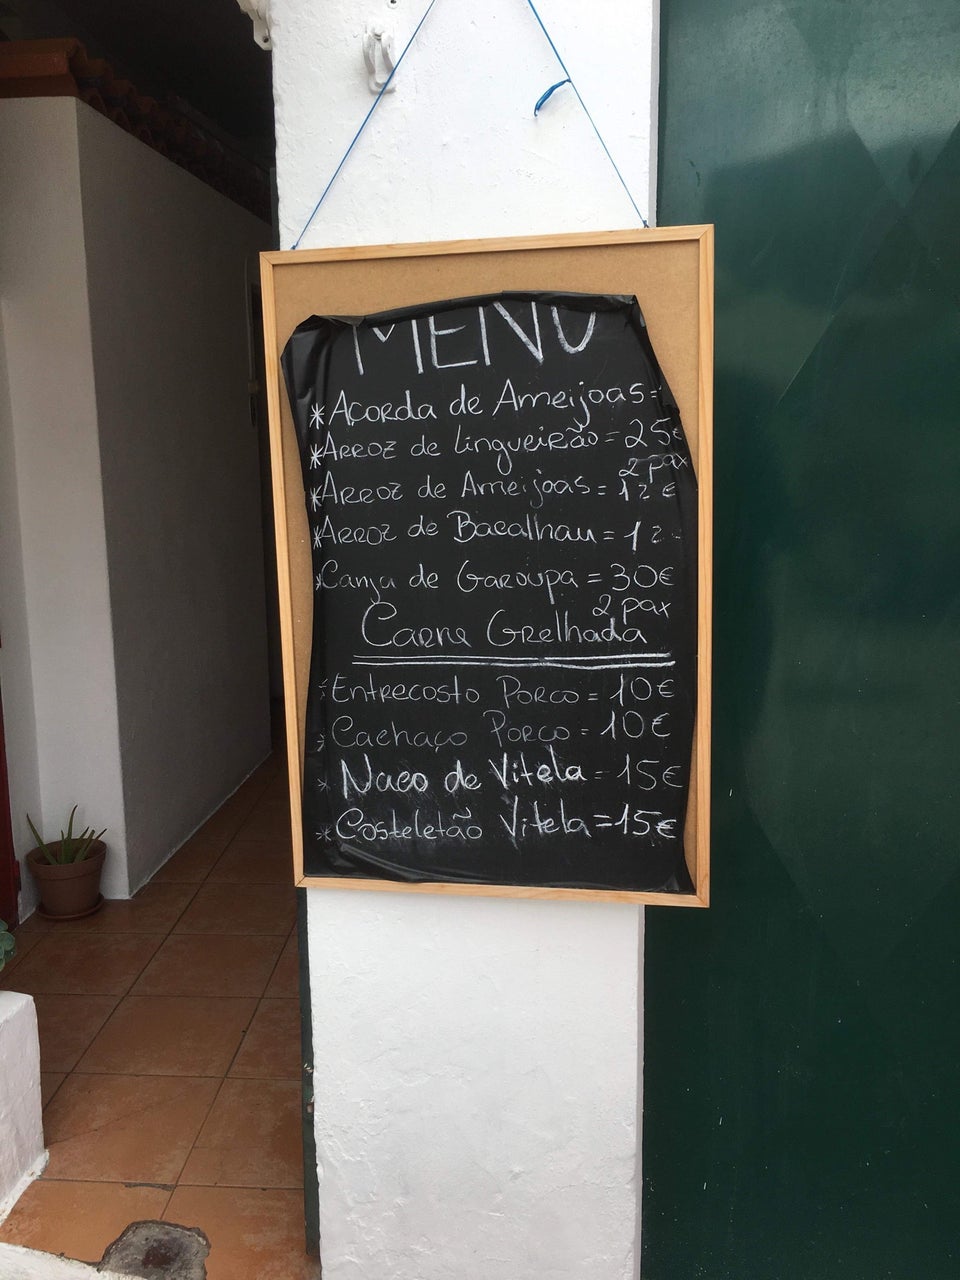 MENU
* Açorda de Ameijoas =
* Arroz de Lingueirão = 25€
2 pax
* Arroz de Ameijoas = 12€
* Arroz de Bacalhau = 12
* Canja de Garoupa = 30€
2 pax
Carne Grelhada
* Entrecosto Porco = 10€
* Cachaço Porco = 10€
* Naco de Vitela = 15€
* Costeletão Vitela = 15€